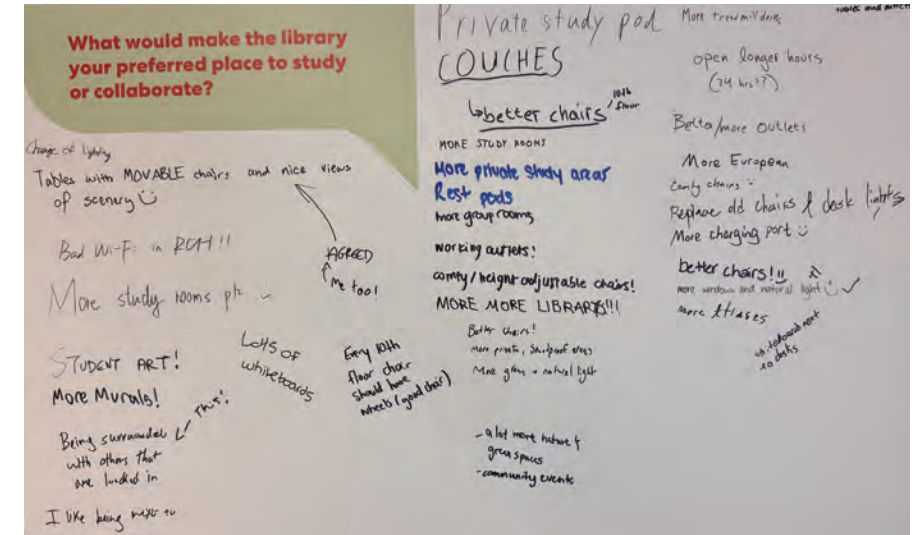 What would make the library
your preferred place to study
or collaborate?
Change of lighting
Tables with MOVABLE chairs and nice views
of scenery
AGREED
me too!
Bad Wi-Fi in RCH!!
More study rooms
STUDENT ART!
More Murals!
THIS!
Being surrounded
with others that
are locked in
I like being next to
Lots of
whiteboards
Every 10th
floor chair
should have
wheels (good chair)
Private study pod
COUCHES
better chairs
10th
floor
MORE STUDY ROOMS
More private study areas
Rest pods
more group rooms
working outlets!
comfy/height adjustable chairs!
MORE MORE LIBRARYS!!!
Better chairs!
More private, areas
More green + natural light
- a lot more nature &
green spaces
- community events
More treadmill desks
open longer hours
(24 hrs??)
/more outlets
More European
Comfy chairs
Replace old chairs & desk lights
More charging port
better chairs!!
more windows and natural light
more
whiteboard next
to desks